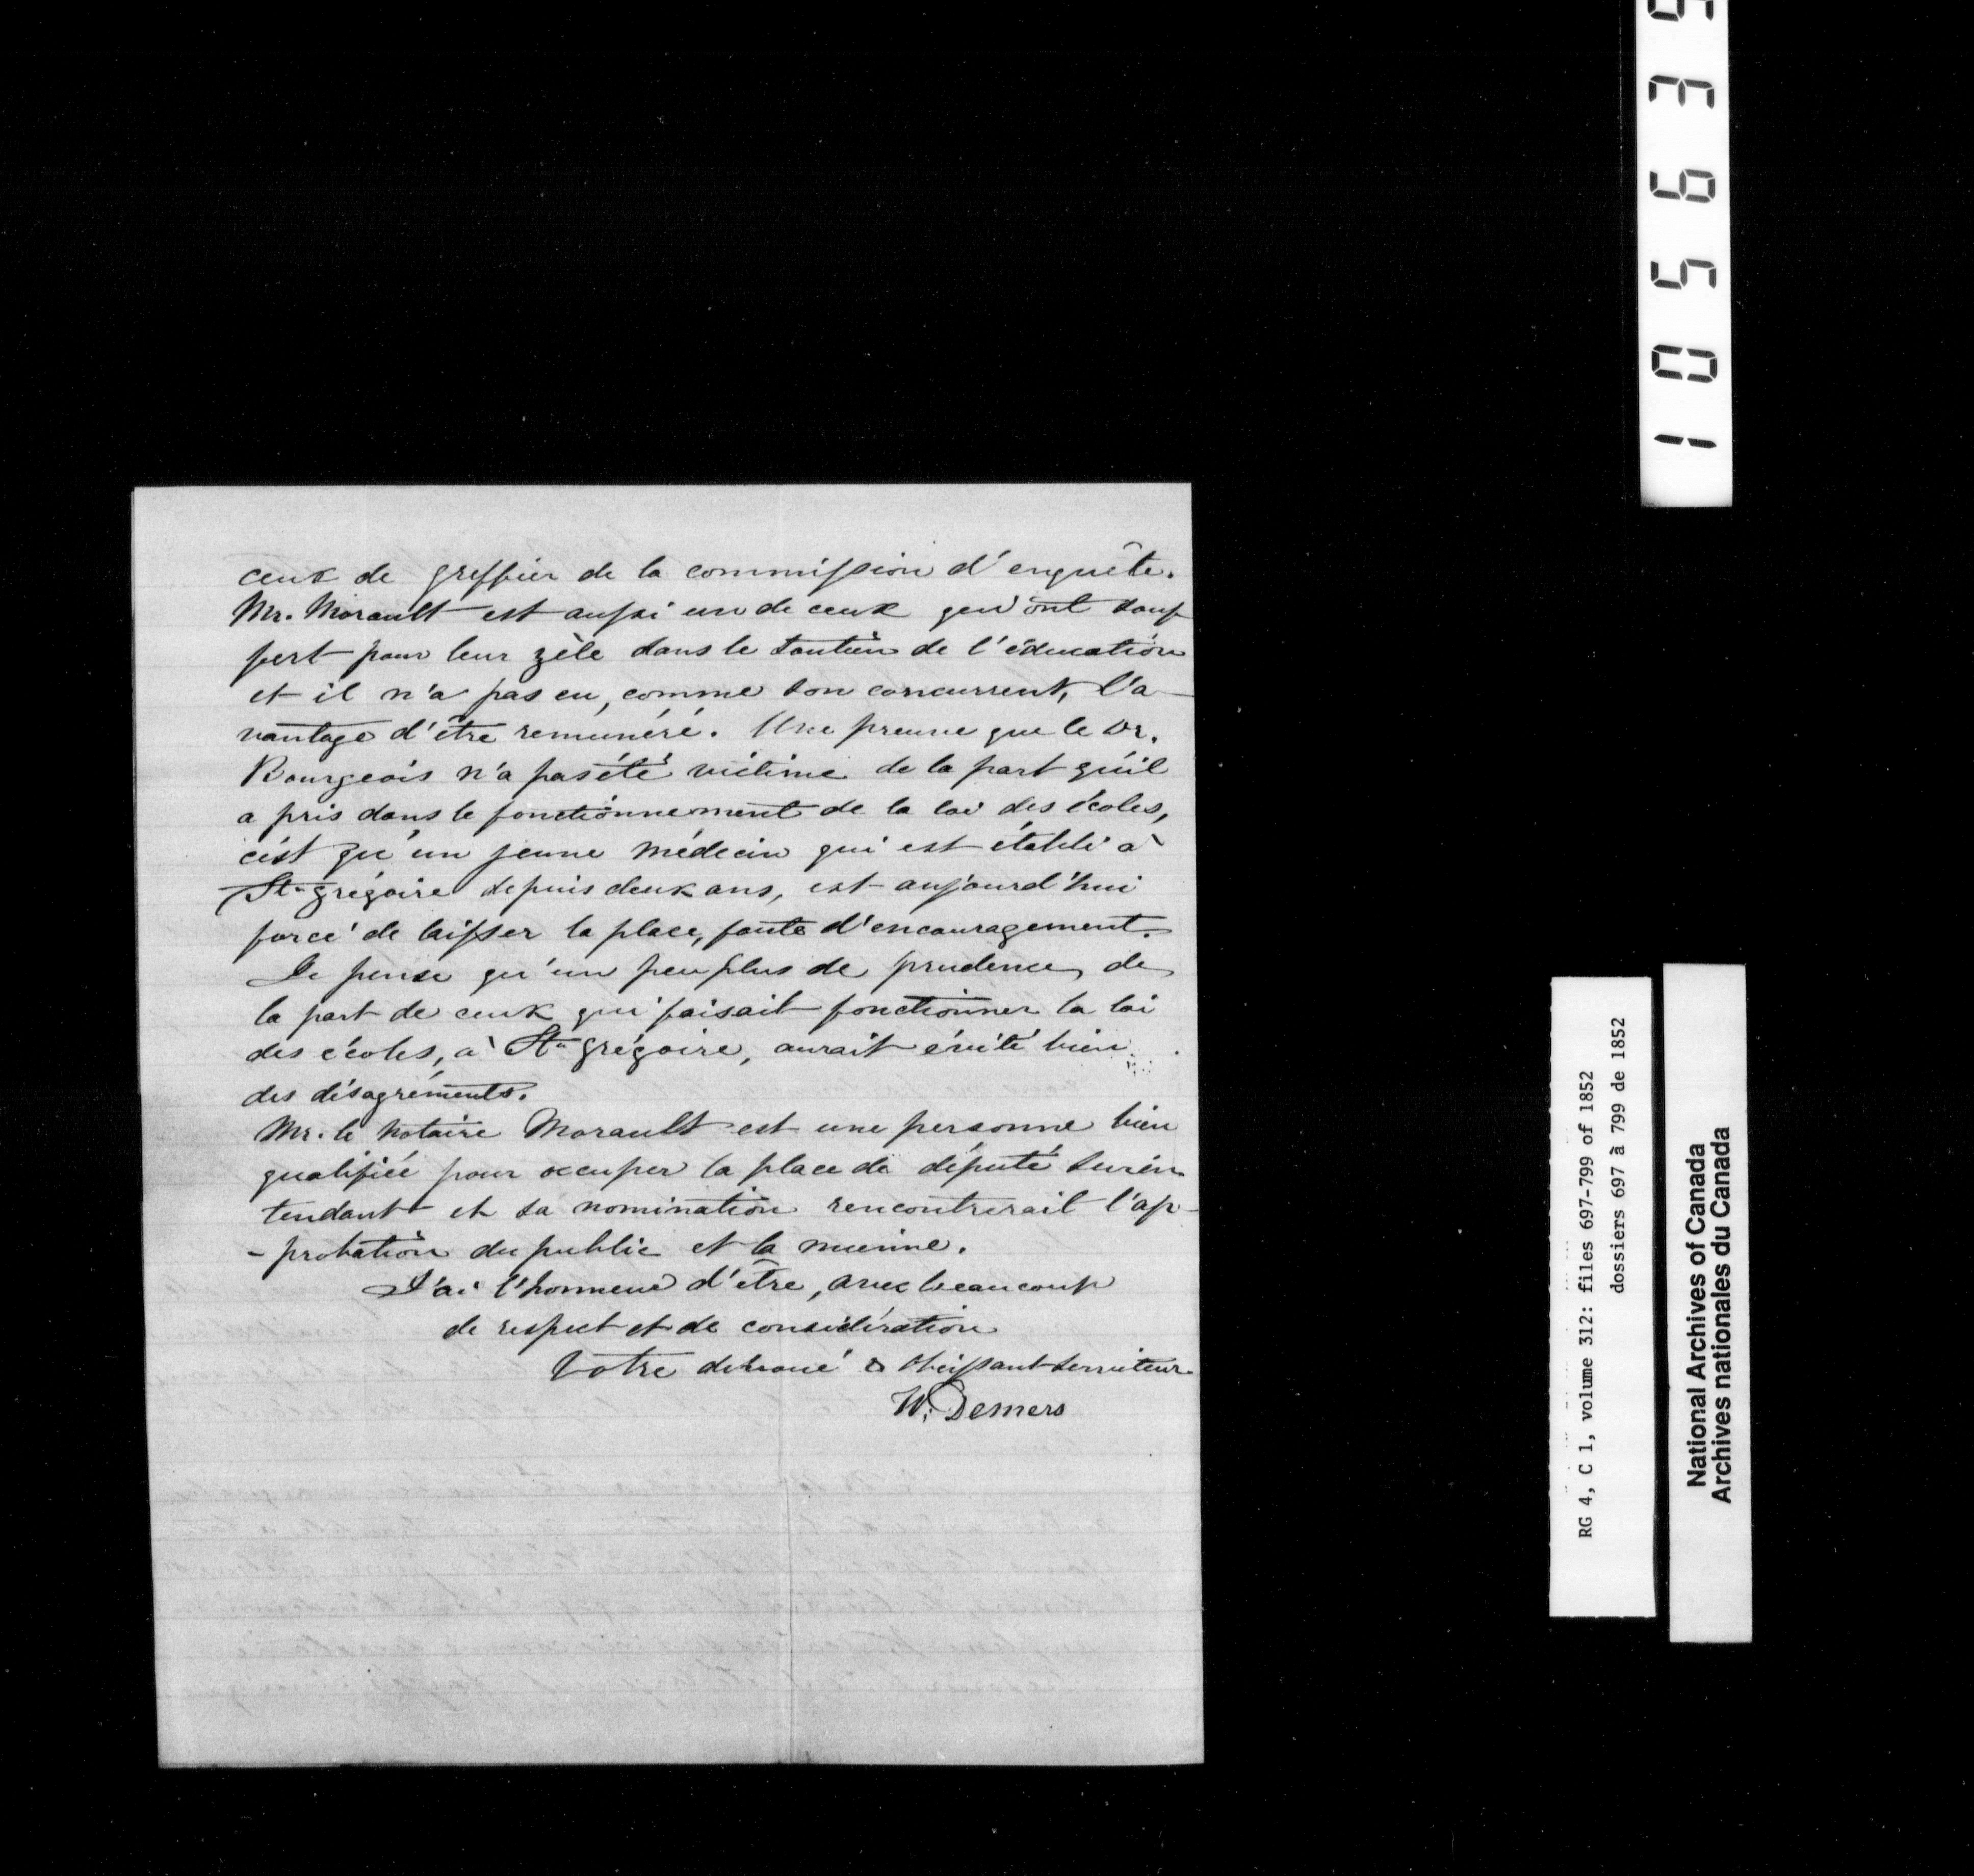 ceux de greffier de la commission d'enquête.
Mr. Morault est aussi un de ceux qui ont souf
fert pour leur zèle dans le soutien de l'éducation
et il n'a pas eu, comme son concurrent, l'a-
vantage d'être rémunéré. Une preuve que le Dr.
Bourgeois n'a pas été victime de la part qu'il
a pris dans le fonctionnement de la loi des écoles,
c'est qu'un jeune médecin qui est établi à
St. Grégoire depuis deux ans, est aujourd'hui
forcé de laisser la place, faute d'encouragement.
Je pense qu'un peu plus de prudence, de
la part de ceux qui faisait fonctionner la loi
des écoles, à St. Grégoire, aurait évité bien
des désagréments.
Mr. le Notaire Morault est une personne bien
qualifiée pour occuper la place de député surin
tendant et sa nomination rencontrerait l'ap-
-probation du public et la mienne.
J'ai l'honneur d'être, avec beaucoup
de respect et de considération
Votre dévoué & obéissant serviteur
W. Demers
105639
RG 4, C 1, volume 312: files 697-799 of 1852
dossiers 697 à 799 de 1852
National Archives of Canada
Archives nationales du Canada